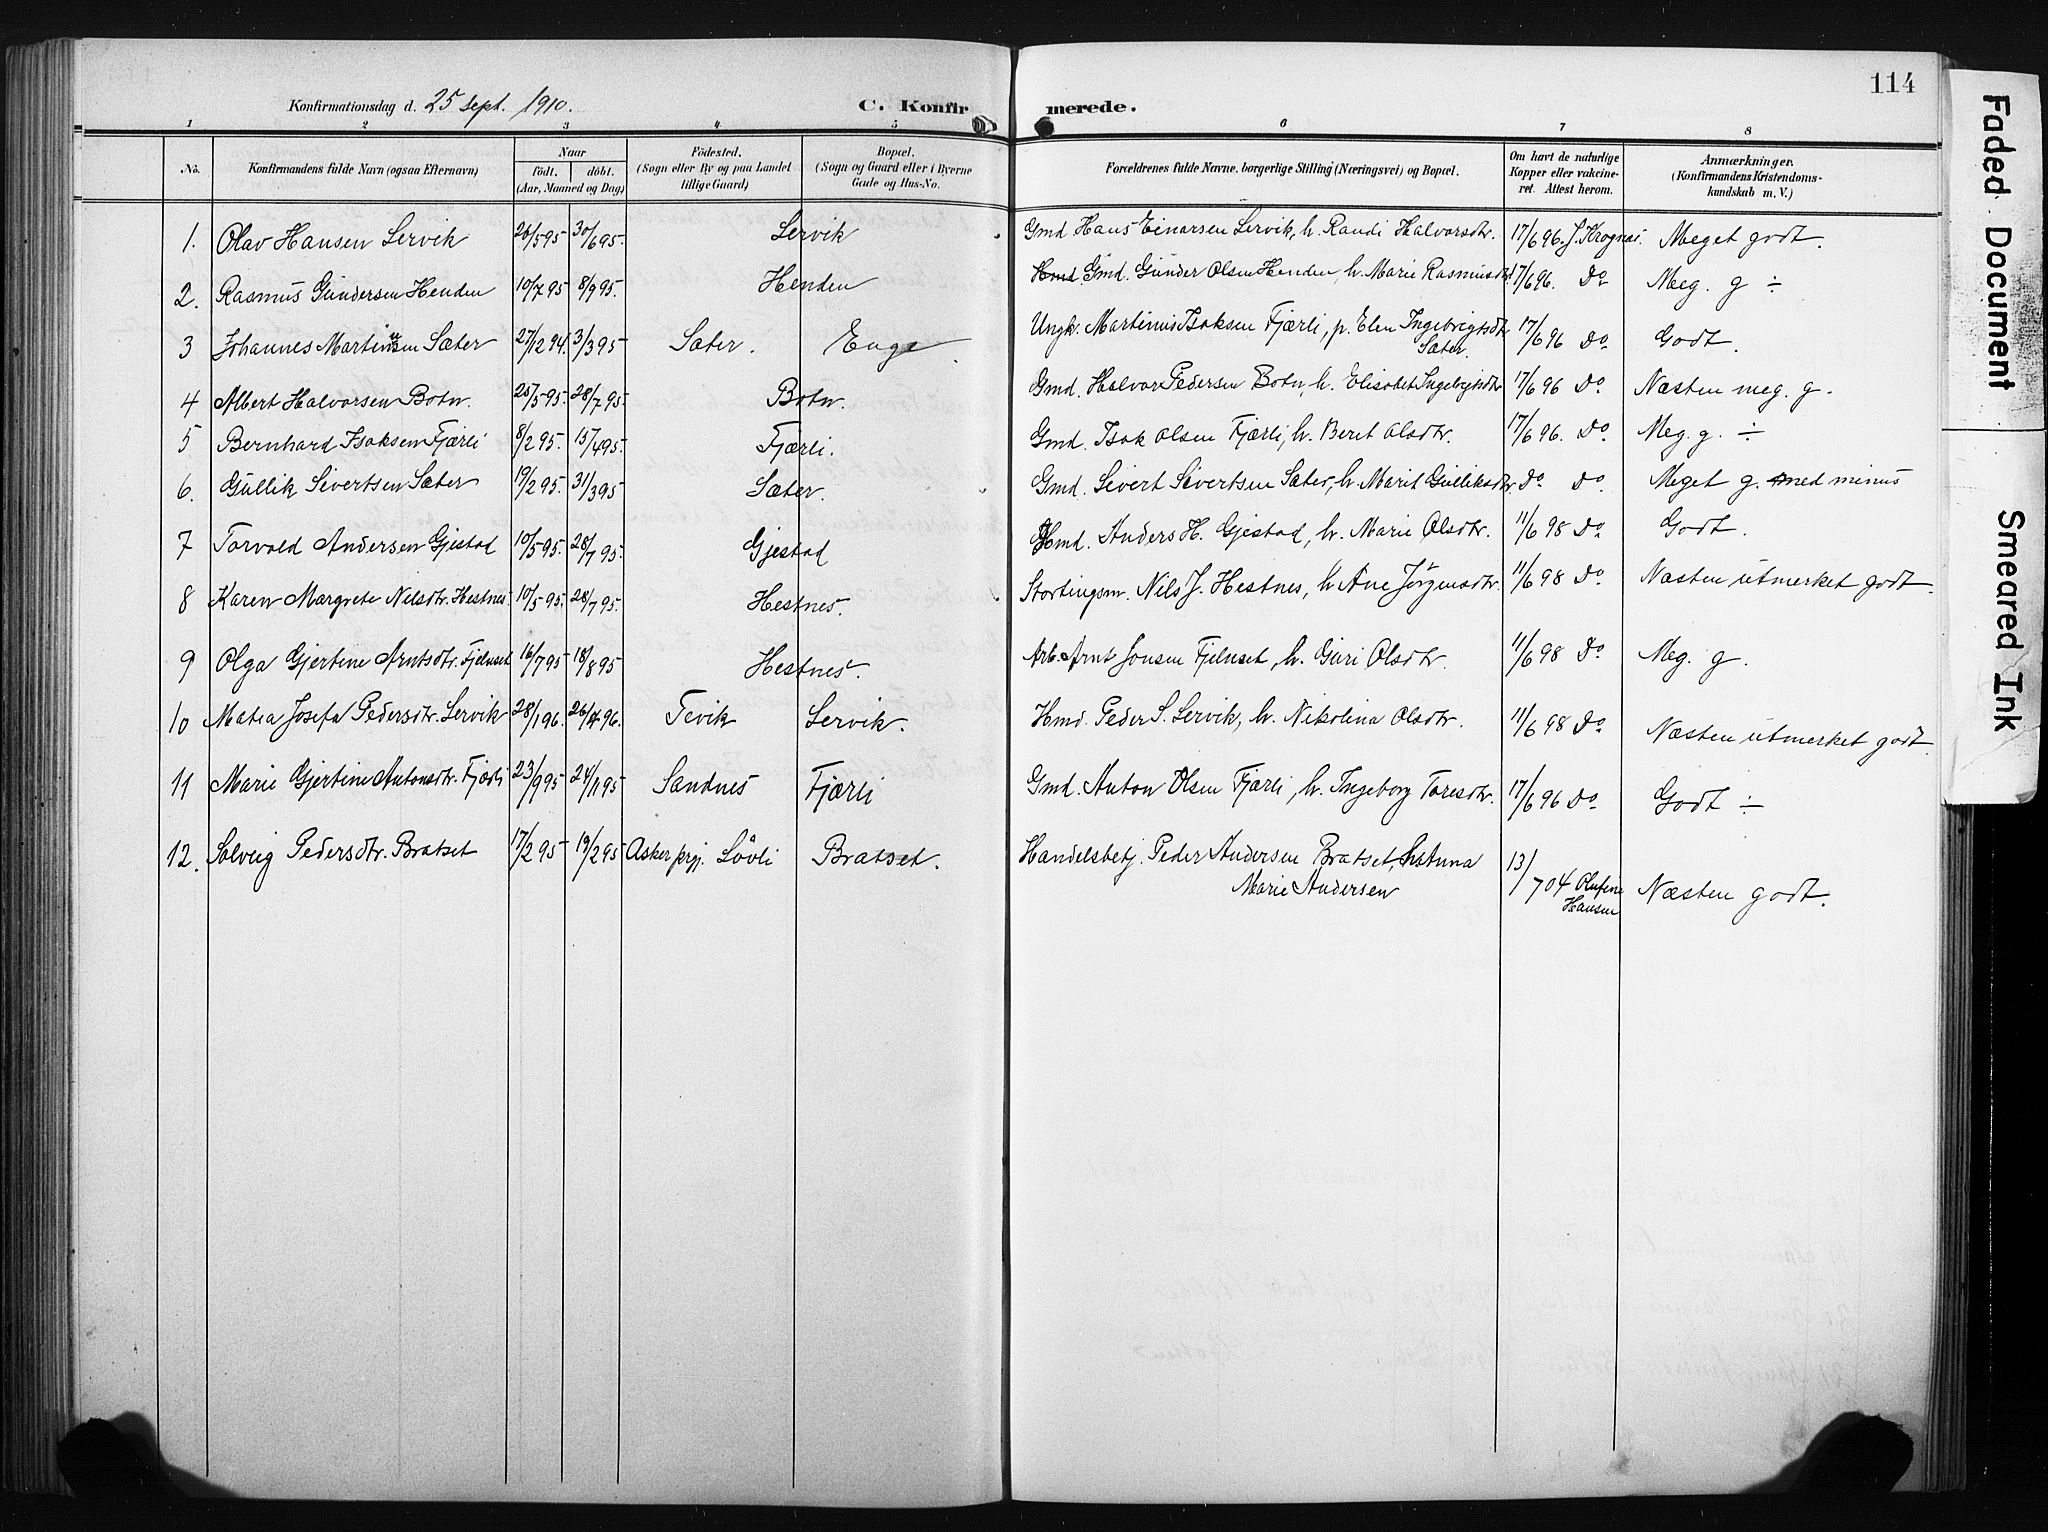 114
Konfirmationsdag d. 25 Sept. 1910.
C. Konfirmerede.
1 2 3 4 5 6 7 8
No.
Konfirmandens fulde Navn (ogsaa Efternavn)
Naar
födt. döbt.
(Aar, Maaned og Dag)
Födested.
(Sogn eller By og paa Landet
tillige Gaard)
Bopæl.
(Sogn og Gaard eller i Byerne
Gade og Hus-No.
Forældrenes fulde Navne, borgerlige Stilling (Næringsvei) og Bopæl.
Om havt de naturlige
Kopper eller vakcine-
ret. Attest herom.
Anmærkninger.
(Konfirmandens Kristendoms-
kundskab m. V.)
1. Olav Hansen Lervik 26/5 95 30/6 95. Lervik Gmd. Hans Einarsen Lervik, h. Randi Halvorsdtr. 17/6 96. J. Krognæs. Meget godt.
2. Rasmus Gundersen Henden 10/7 95 8/9 95. Henden Hmd Gmd. Gunder Olsen Henden, h. Marie Rasmusdtr 17/6 96. Do Meg. g ÷
3 Johannes Martinusen Sæter 27/12 94. 3/3 95 Sæter. Enge. Ungk. Martinus Isaksen Fjærli, p. Elen Ingebrigtsdtr Sæter. 17/6 96 Do Godt.
4 Albert Halvorsen Botn. 25/5 95. 28/7 95. Botn. Gmd. Halvor Pedersen Botn, h. Elisabet Ingebrigtsdtr 17/6 96 Do Næsten meg. g.
5 Bernhard Isaksen Fjærli 8/2 95. 15/4 95. Fjærli. Gmd. Isak Olsen Fjærli, h. Beret Olsdtr. 17/6 96. Do. Meg. g. ÷
6. Gullik Sivertsen Sæter 19/2 95. 31/3 95 Sæter. Gmd. Sivert Sivertsen Sæter, h. Marit Gulliksdtr. Do Do. Meget g. med minus
7 Torvald Andersen Gjestad 10/5 95. 28/7 95. Gjestad Hmd. Anders H. Gjestad, h. Marie Olsdtr. 11/6 98 Do Godt.
8 Karen Margrete Nilsdtr. Hestnes. 10/5 95. 28/7 95. Hestnes. Stortingsm. Nils J. Hestnes, h Ane Jörgensdtr. 11/6 98 Do. Næsten utmerket godt.
9 Olga Gjertine Arntsdtr. Fjelnset 16/7 95 18/8 95 Hestnes. Arb. Arnt Jonsen Fjelnset, h. Guri Olsdtr. 11/6 98 Do Meg. g.
10 Matea Josefa Pedersdtr. Lervik 28/1 96. 26/4 96. Tevik Lervik. Hmd. Peder S. Lervik, h. Nikolina Olsdtr. 11/6 98 Do Næsten utmerket godt.
11 Marie Gjertine Antonsdtr. Fjærli 23/9 95 24/11 95 Sandnes Fjærli Gmd. Anton Olsen Fjærli, h. Ingeborg Toresdtr. 17/6 96 Do Godt ÷
12. Solveig Pedersdtr. Bratset 17/2 95 19/2 95 Asker prgj. Lövli Bratset. Handelsbetj. Peder Andersen Bratset, h. Anna
Marie Andersen 13/7 04 Olufine
Hansen Næsten godt.
Faded Document
Smeared Ink